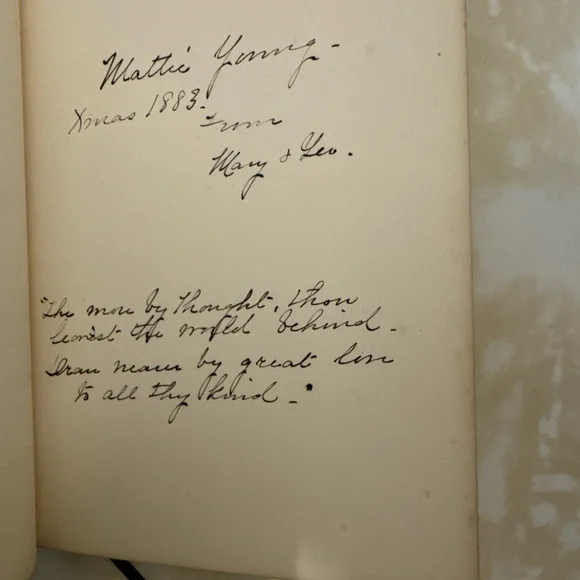 Mattie Young -
Xmas 1883.
From
Mary & Geo.
"The more by thought, thou
leavest the world behind -
Draw nearer by great love
to all thy kind -"